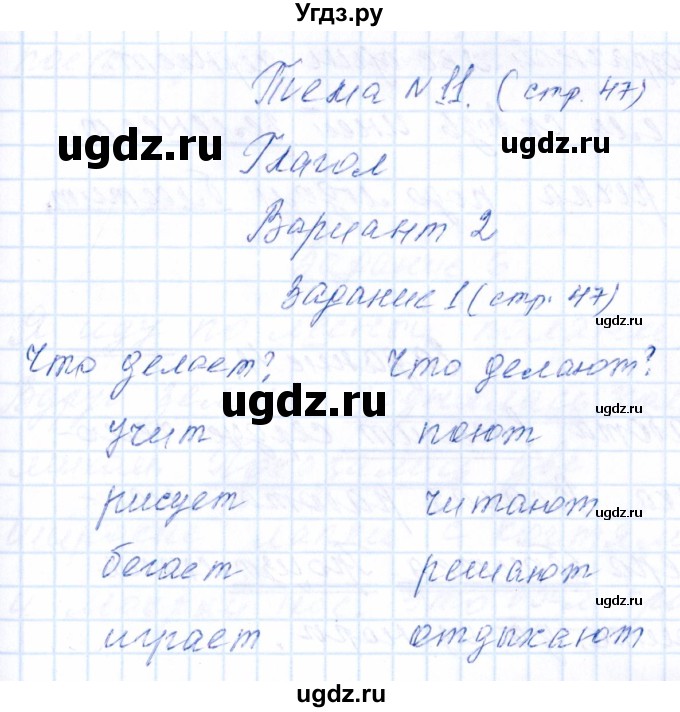 Угдз.ру
Тема №11. (стр. 47)
ugdz.ru
ugdz.ru
Глагол
Вариант 2
ugdz.ru
Задание 1 (стр. 47)
ugdz.ru
Что делает? Что делают?
ugdz.ru
ugdz.ru
учит поют
рисует читают
ugdz.ru
бегает решают
ugdz.ru
играет отдыхают
ugdz.ru